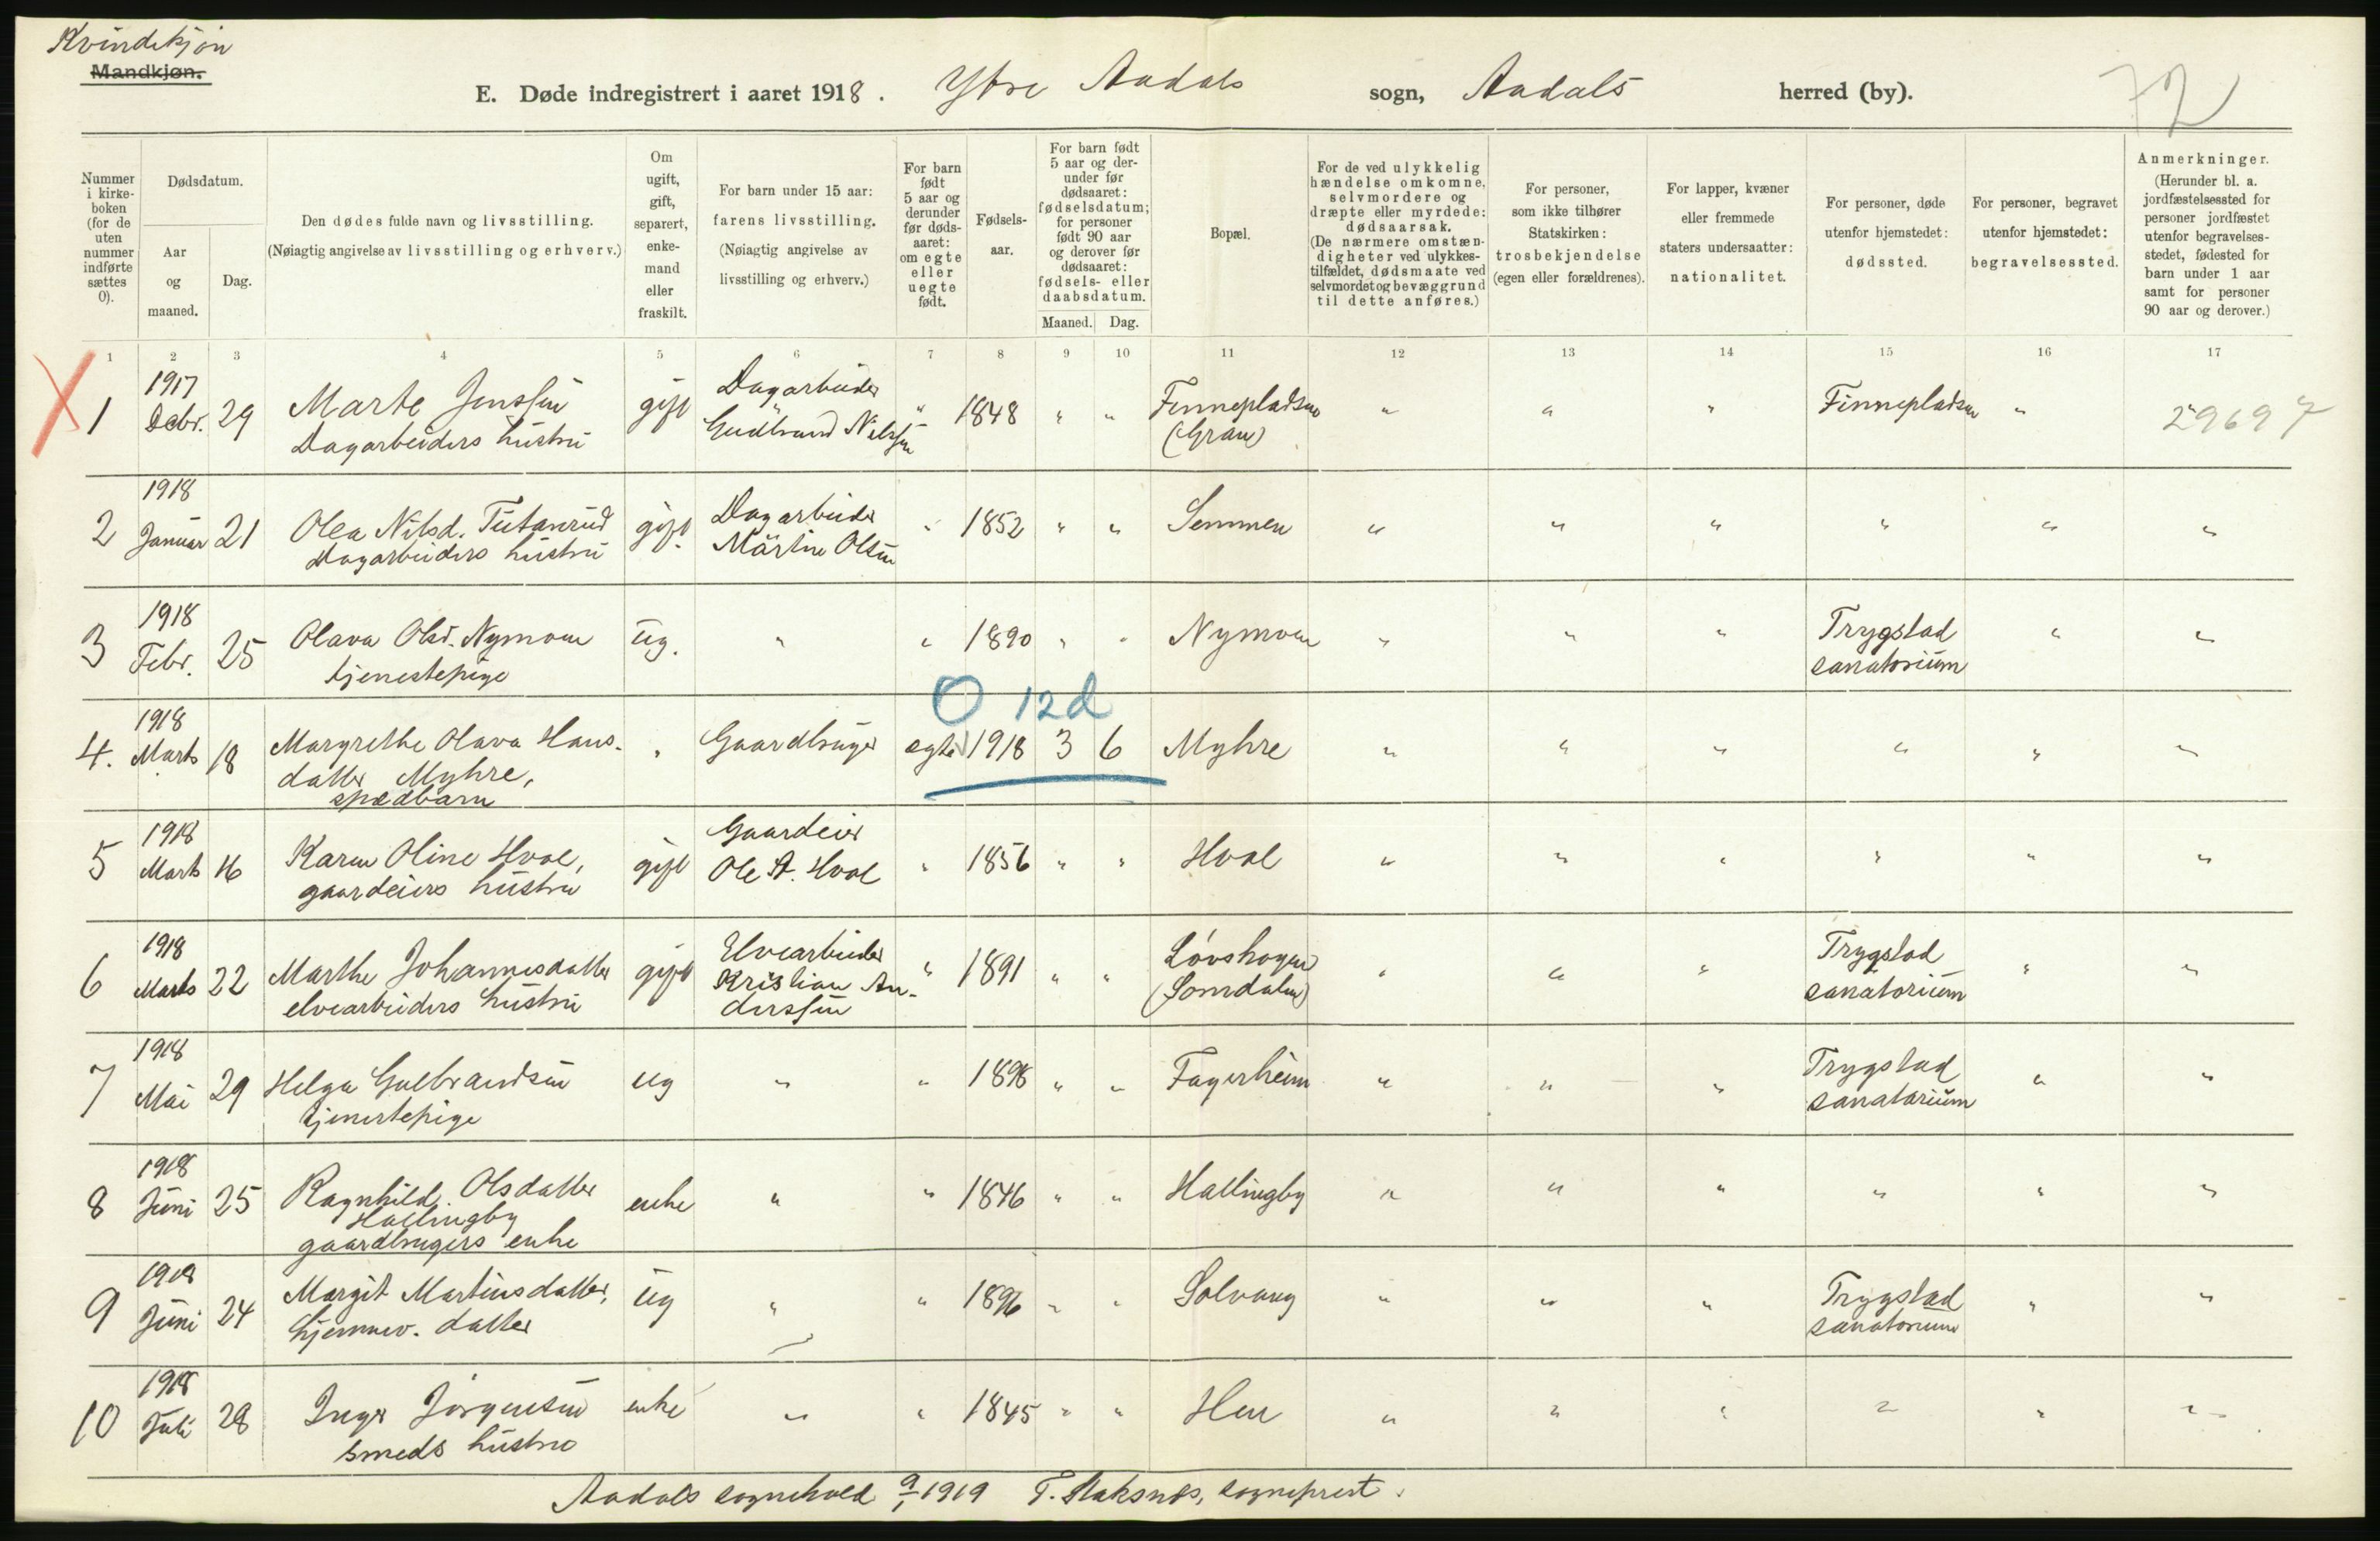 Kvindekjøn
Mandkjøn.
E. Døde indregistrert i aaret 1918. Ytre Aadals sogn, Aadals herred (by).
72
Nummer i kirke-boken (for de uten nummer indførte sættes 0).
Dødsdatum.
Aar og maaned.
Dag.
Den dødes fulde navn og livsstilling.
(Nøiagtig angivelse av livsstilling og erhverv.)
Om ugift, gift, separert, enke-mand eller fraskilt.
For barn under 15 aar: farens livsstilling. (Nøiagtig angivelse av livsstilling og erhverv.)
For barn født 5 aar og derunder før døds-aaret: om egte eller uegte født.
Fødsels-aar.
For barn født 5 aar og der-under før dødsaaret: fødselsdatum; for personer født 90 aar og derover før dødsaaret: fødsels- eller daabsdatum.
Maaned. Dag.
Bopæl.
For de ved ulykkelig hændelse omkomne, selvmordere og dræpte eller myrdede: dødsaarsak. (De nærmere omstæn-digheter ved ulykkes-tilfældet, dødsmaate ved selvmordet og bevæggrund til dette anføres.)
For personer, som ikke tilhører Statskirken: trosbekjendelse (egen eller forældrenes).
For lapper, kvæner eller fremmede staters undersaatter: nationalitet.
For personer, døde utenfor hjemstedet: dødssted.
For personer, begravet utenfor hjemstedet: begravelsessted.
Anmerkninger. (Herunder bl. a. jordfæstelsessted for personer jordfæstet utenfor begravelses-stedet, fødested for barn under 1 aar samt for personer 90 aar og derover.)
1 2 3 4 5 6 7 8 9 10 11 12 13 14 15 16 17
1 1917 Decbr. 29 Marte Jenssen Dagarbeiders hustru gift Dagarbeider Gudbrand Nilssen " 1848 " " Finnepladsen (Gran) " " " Finnepladsen " 29697
2 1918 Januar 21 Olea Nilsd. Tutanrud Dagarbeiders hustru gift. Dagarbeider Martin Olsen " 1852 " " Semmen " " " " " "
3 1918 Febr. 25 Olava Olsd. Nymoen tjenestepige ug. " " 1890 " " Nymoen " " " Trygstad sanatorium " "
0 12d
4. 1918 Marts 18 Margrethe Olava Hans-datter Myhre, spædbarn " Gaardbruger egte 1918 3 6 Myhre " " " " " "
5 1918 Marts 16 Karen Oline Hval, gaardeiers hustru gift Gaardeier Ole A. Hval " 1856 " " Hval " " " " " "
6 1918 Marts 22 Marthe Johannesdatter elvearbeiders hustru gift Elvearbeider Kristian An-derssen " 1891 " " Løvshagen (Somdalen) " " " Trygstad sanatorium " "
7 1918 Mai 29 Helga Gulbrandsen tjenestepige ug " " 1898 " " Fagerheim " " " Trygstad sanatorium " "
8 1918 Juni 25 Ragnhild Olsdatter Hallingby gaardbrugers enke enke " " 1846 " " Hallingby " " " " " "
9 1918 Juni 24 Margit Martinsdatter, hjemmev. datter ug " " 1896 " " Solvang " " " Trygstad sanatorium " "
10 1918 Juli 28 Inger Jørgensen smeds hustru enke " " 1845 " " Hen " " " " " "
Aadals sognekald 9/1 1919 T. Staksnes, sogneprest.